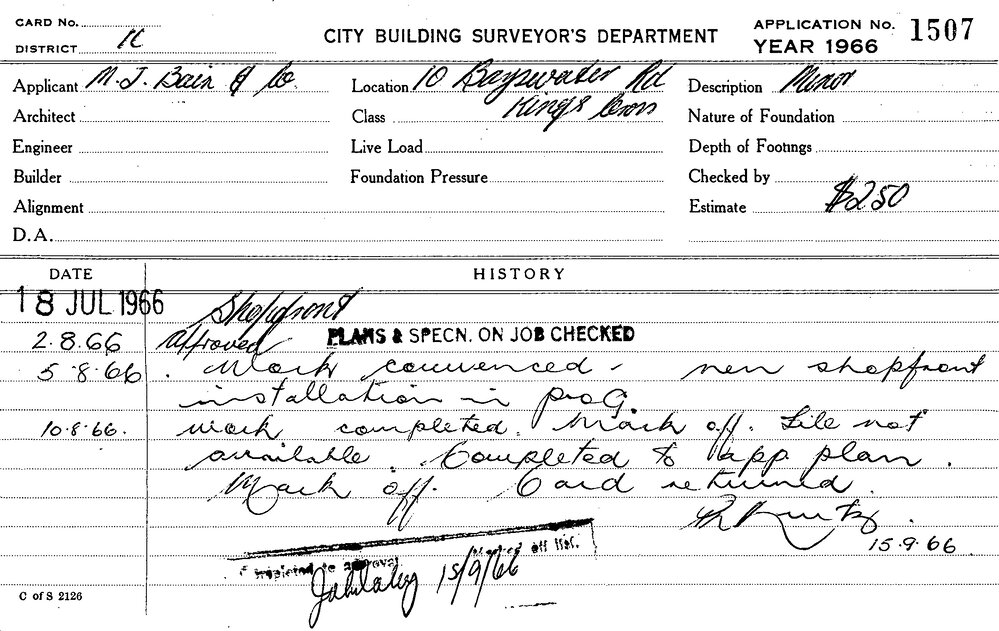 CARD No.
DISTRICT K
CITY BUILDING SURVEYOR'S DEPARTMENT
APPLICATION No. 1507
YEAR 1966
Applicant M. J. Bain & Co.
Location 10 Bayswater Rd
Description Minor
Architect
Class Kings Cross
Nature of Foundation
Engineer
Live Load
Depth of Footings
Builder
Foundation Pressure
Checked by
Alignment
Estimate $250
D.A.
DATE
HISTORY
18 JUL 1966 Shopfront
2.8.66 Approved PLANS & SPECN. ON JOB CHECKED
5.8.66 . Work commenced - new shopfront
installation in prog.
10.8.66. Work completed. Mark off. File not
available. Completed to app plan.
Mark off. Card returned.
15.9.66
Completed to approval. Marked off list.
15/9/66
C of S 2126